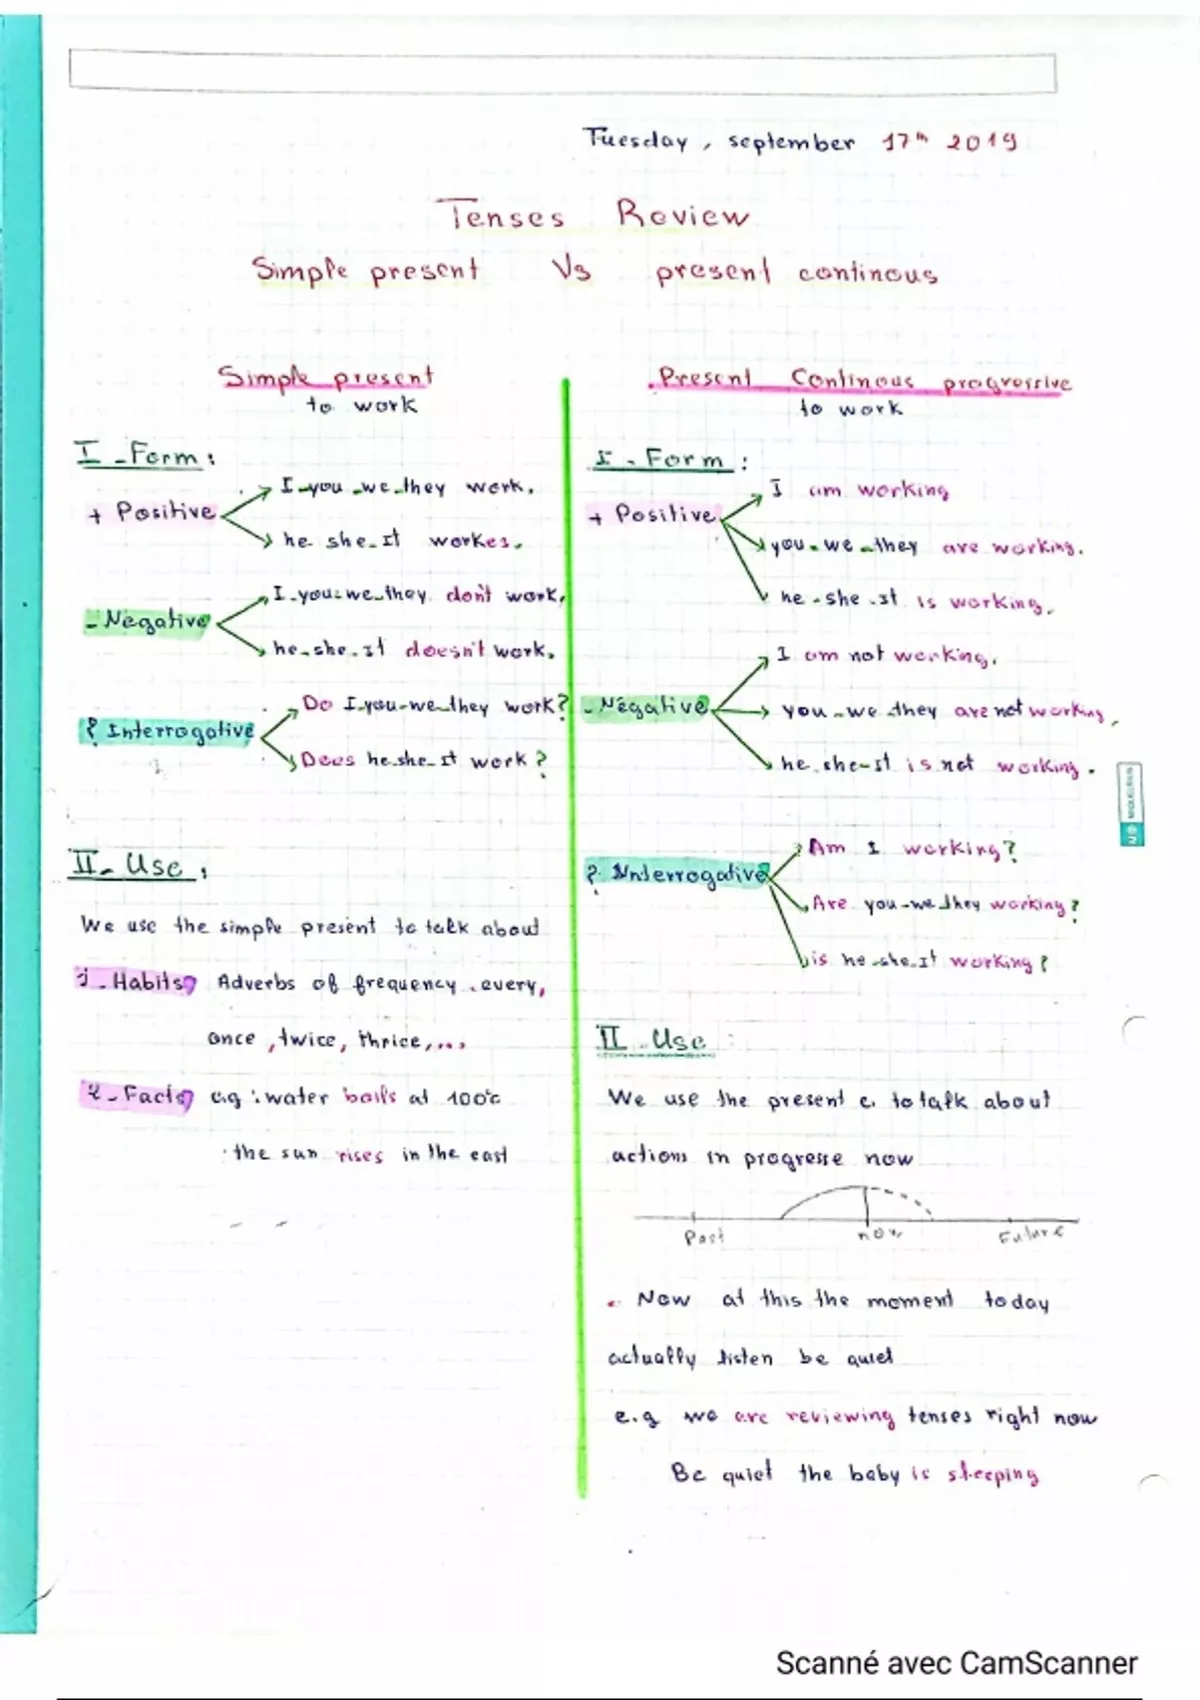 Tuesday, september 17th 2019
Tenses Review
Simple present Vs present continous
Simple present
to work
I - Form :
+ Positive
I - you - we - they work.
he she - It workes.
- Negative
I - you - we - they don't work.
he - she - It doesn't work.
? Interrogative
Do I - you - we - they work?
Does he - she - It work ?
II - Use :
We use the simple present to talk about
1 - Habits Adverbs of frequency . every,
once, twice, thrice, ...
2 - Facts e.g : water boils at 100°c
. the sun rises in the east
Present Continous progressive
to work
I - Form :
+ Positive
I am working
you - we - they are working.
he - she - It is working.
- Negative
I am not working.
you - we - they are not working.
he - she - It is not working.
? Interrogative
Am I working?
Are you - we - they working?
is he - she - It working ?
II - Use :
We use the present c. to talk about
actions in progresse now
Past now Future
. Now at this the moment today
actually listen be quiet
e.g we are reviewing tenses right now
Be quiet the baby is sleeping
Scanné avec CamScanner